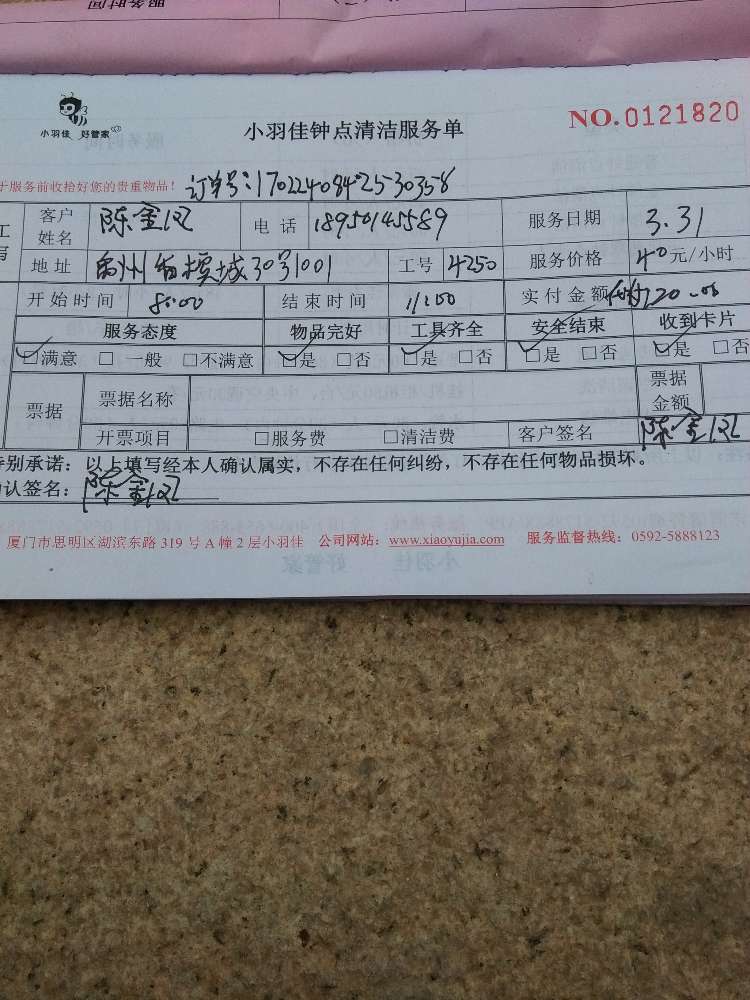 服务时间
小羽佳 好管家
小羽佳钟点清洁服务单
NO.0121820
于服务前收拾好您的贵重物品！ 订单号:170224084253035８
客户姓名 陈金仪 电话 18950145589 服务日期 3.31
地址 禹州香槟城30号1001 工号 4250 服务价格 40元/小时
开始时间 8:00 结束时间 11:00 实付金额 120.00
服务态度 物品完好 工具齐全 安全结束 收到卡片
☑满意 □一般 □不满意 ☑是 □否 ☑是 □否 ☑是 □否 ☑是 □否
票据 票据名称 票据金额
开票项目 □服务费 □清洁费 客户签名 陈金仪
特别承诺：以上填写经本人确认属实，不存在任何纠纷，不存在任何物品损坏。
确认签名： 陈金仪
厦门市思明区湖滨东路 319 号 A 幢 2 层小羽佳 公司网站：www.xiaoyujia.com 服务监督热线：0592-5888123